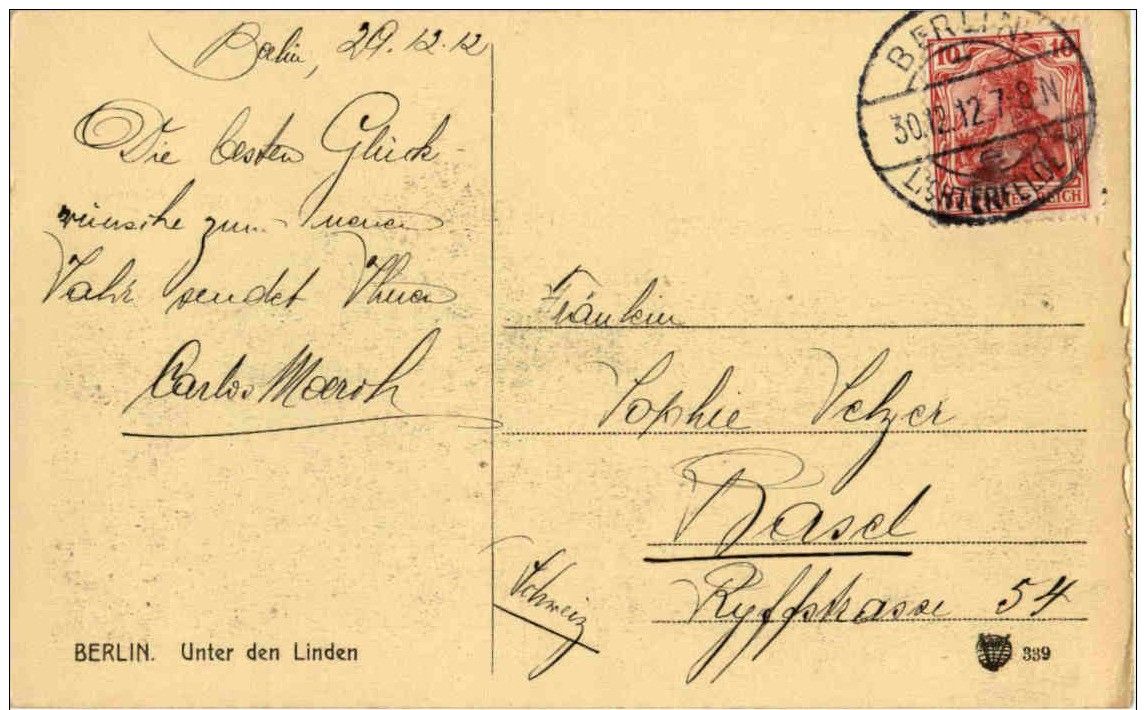 Berlin, 29.12.12
Die besten Glück-
wünsche zum neuen
Jahr sendet Ihnen
Carlos
BERLIN. Unter den Linden
BERLIN
30.12.12.7-8.N
LICHTERFELDE
10 10
Fräulein
Sophie
Basel
Ryffstrasse 54
Schweiz
339